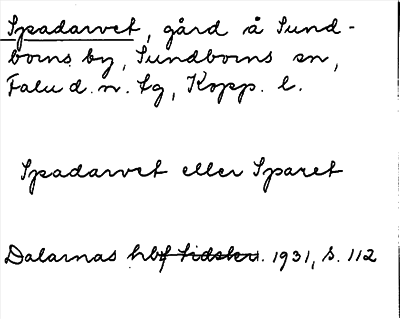 Spadarvet, gård å Sund-
borns by, Sundborns sn,
Falu d. n. tg, Kopp. l.
Spadarvet eller Sparet
Dalarnas hbf tidskr. 1931, s. 112